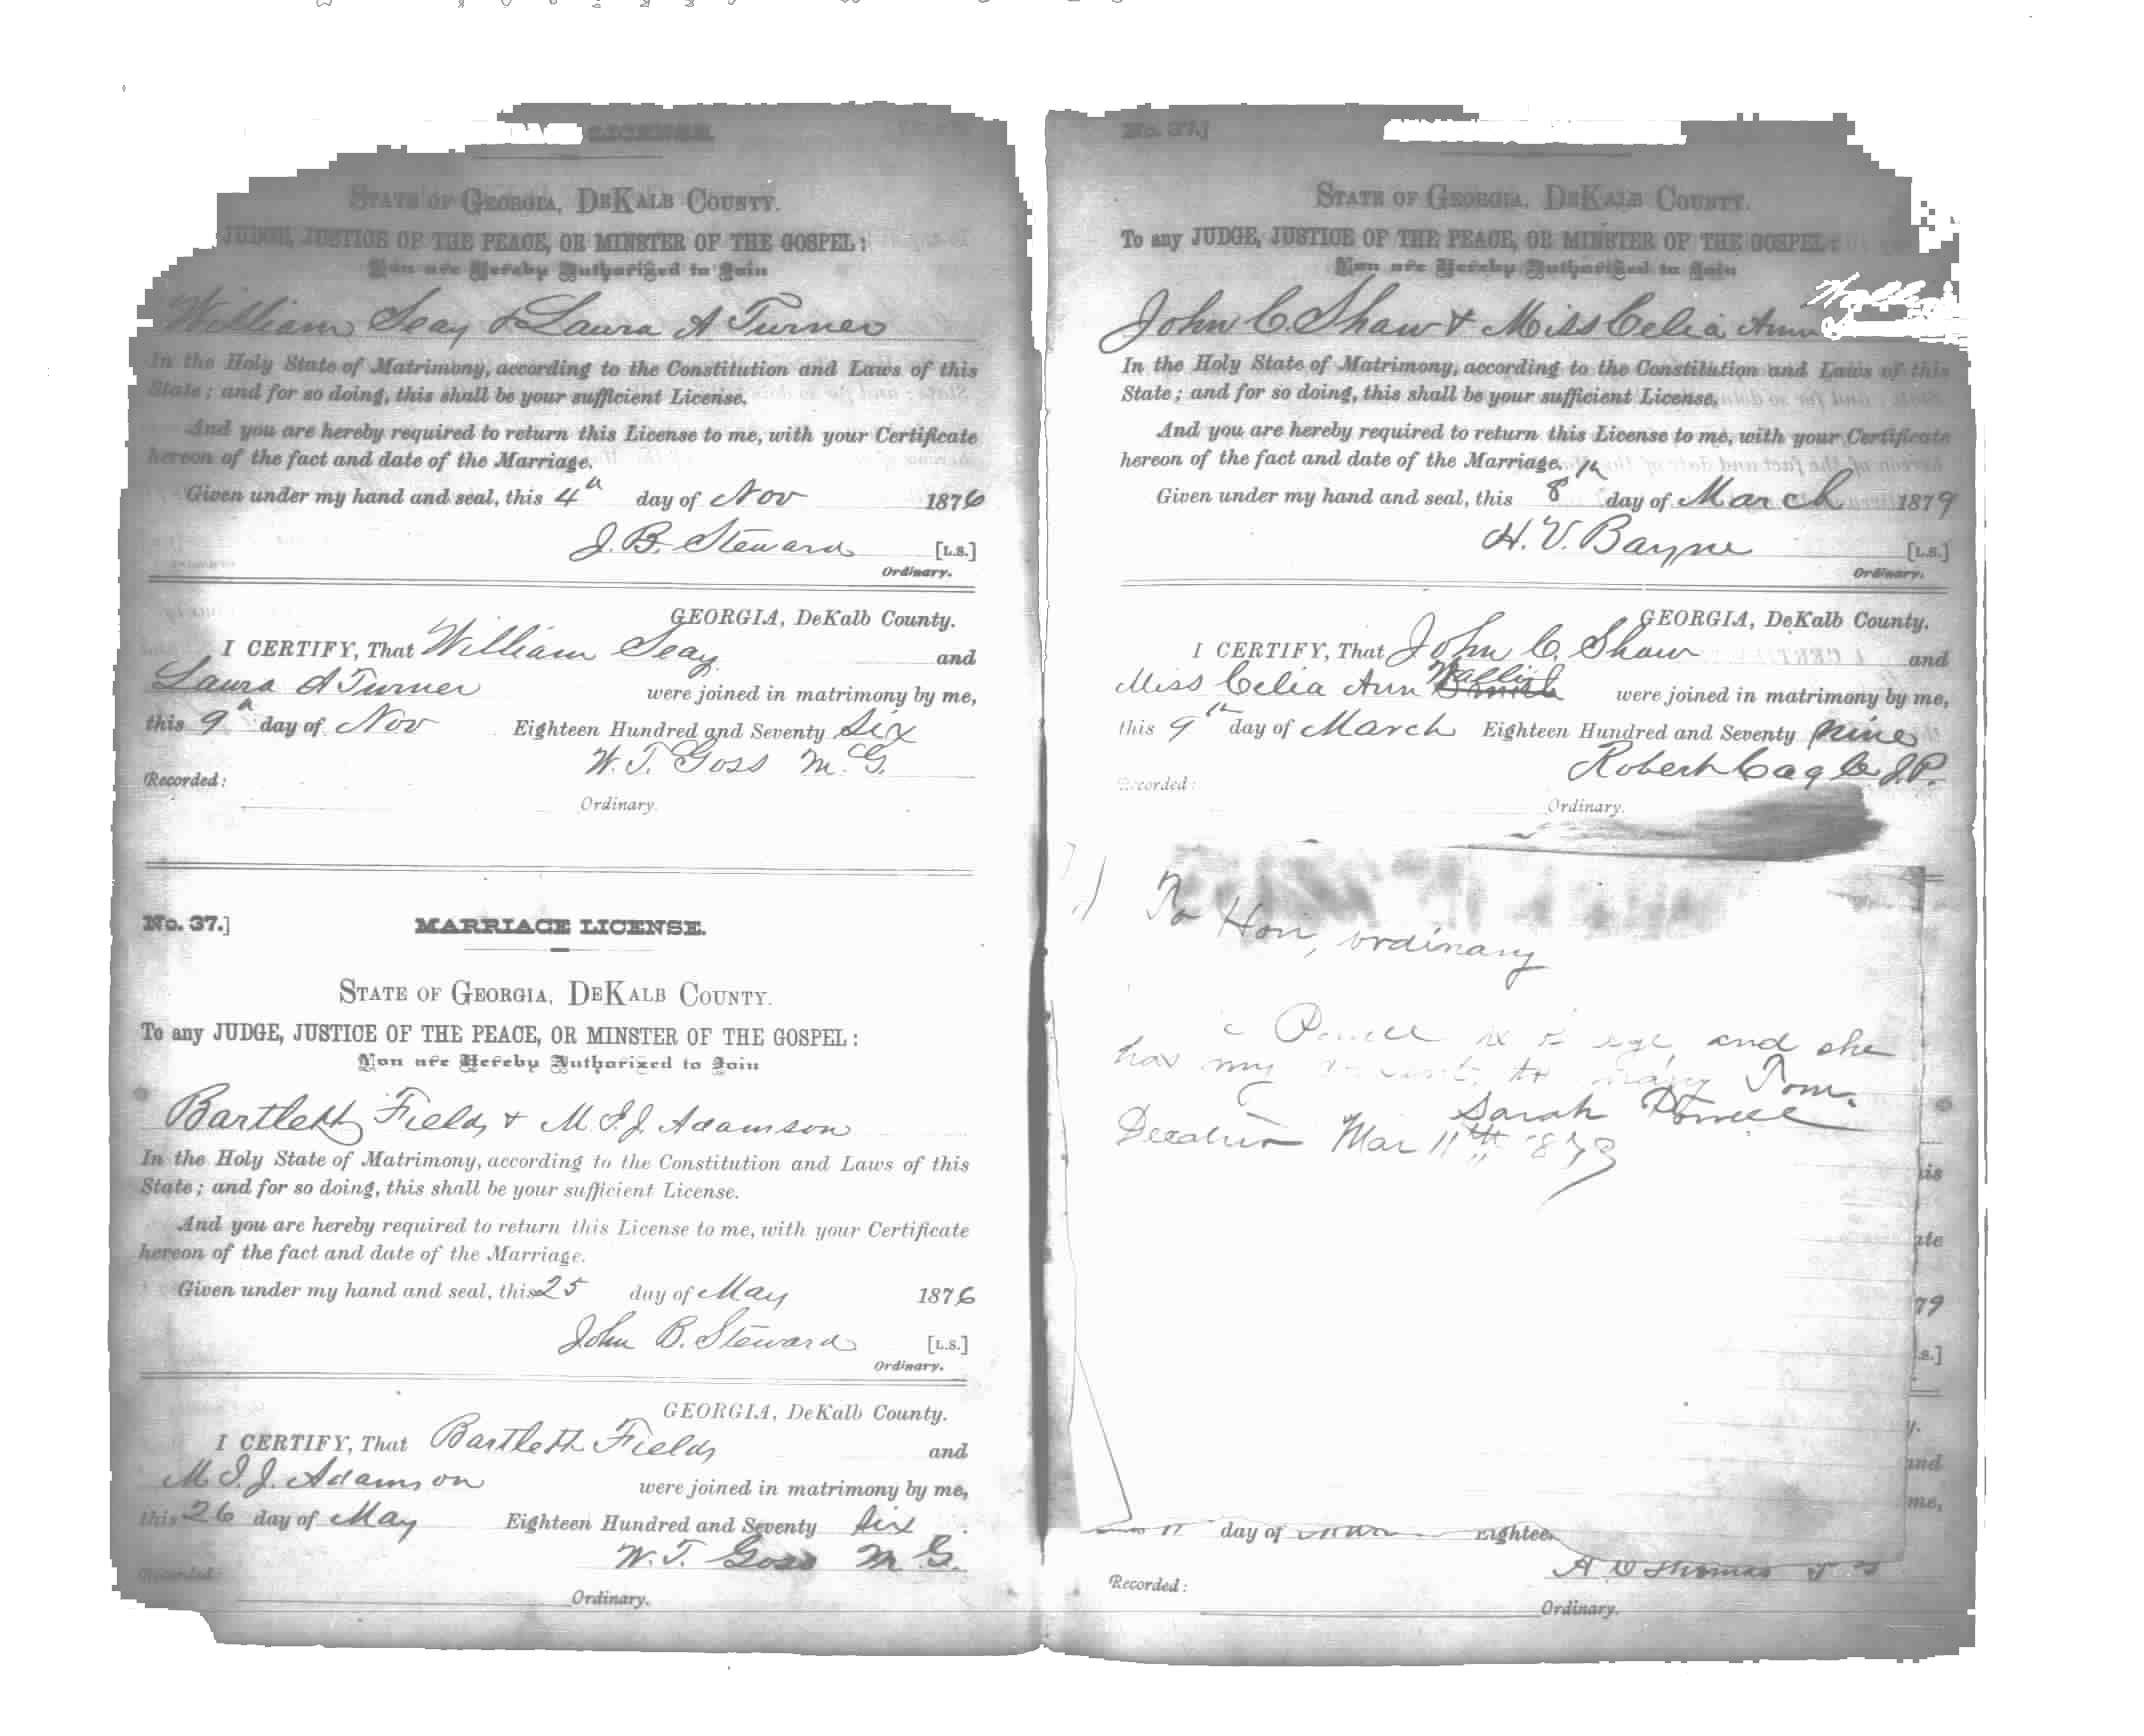 LICENSE.
STATE OF GEORGIA, DEKALB COUNTY.
JUDGE, JUSTICE OF THE PEACE, OR MINSTER OF THE GOSPEL:
You are Hereby Authorized to Join
William Seay & Laura A Turner
In the Holy State of Matrimony, according to the Constitution and Laws of this
State; and for so doing, this shall be your sufficient License.
And you are hereby required to return this License to me, with your Certificate
hereon of the fact and date of the Marriage.
Given under my hand and seal, this 4th day of Nov 1876
J. B. Steward [L.S.]
Ordinary.
GEORGIA, DeKalb County.
I CERTIFY, That William Seay and
Laura A Turner were joined in matrimony by me,
this 9th day of Nov Eighteen Hundred and Seventy Six
W. T. Goss M. G.
Recorded:
Ordinary.
No. 37.] MARRIAGE LICENSE.
STATE OF GEORGIA, DEKALB COUNTY.
To any JUDGE, JUSTICE OF THE PEACE, OR MINSTER OF THE GOSPEL:
You are Hereby Authorized to Join
Bartlett Fields & M. I. J. Adamson
In the Holy State of Matrimony, according to the Constitution and Laws of this
State; and for so doing, this shall be your sufficient License.
And you are hereby required to return this License to me, with your Certificate
hereon of the fact and date of the Marriage.
Given under my hand and seal, this 25 day of May 1876
John B. Steward [L.S.]
Ordinary.
GEORGIA, DeKalb County.
I CERTIFY, That Bartlett Fields and
M. I. J. Adamson were joined in matrimony by me,
this 26 day of May Eighteen Hundred and Seventy Six
W. T. Goss M. G.
Recorded:
Ordinary.
No. 37.]
STATE OF GEORGIA, DEKALB COUNTY.
To any JUDGE, JUSTICE OF THE PEACE, OR MINSTER OF THE GOSPEL:
You are Hereby Authorized to Join
John C. Shaw & Miss Celia Ann
In the Holy State of Matrimony, according to the Constitution and Laws of this
State; and for so doing, this shall be your sufficient License.
And you are hereby required to return this License to me, with your Certificate
hereon of the fact and date of the Marriage.
Given under my hand and seal, this 8th day of March 1879
H. V. Bayne [L.S.]
Ordinary.
GEORGIA, DeKalb County.
I CERTIFY, That John C. Shaw and
Miss Celia Ann were joined in matrimony by me,
this 9th day of March Eighteen Hundred and Seventy nine
Robert Cagle J.P.
Recorded:
Ordinary.
To Hon, ordinary
Powell is of age and she
has my consent to marry Tom.
Sarah Powell
Decatur Mar 11th 1879
his
ate
79
.s.]
y.
and
me,
11 day of Eightee
A Thomas
Recorded:
Ordinary.